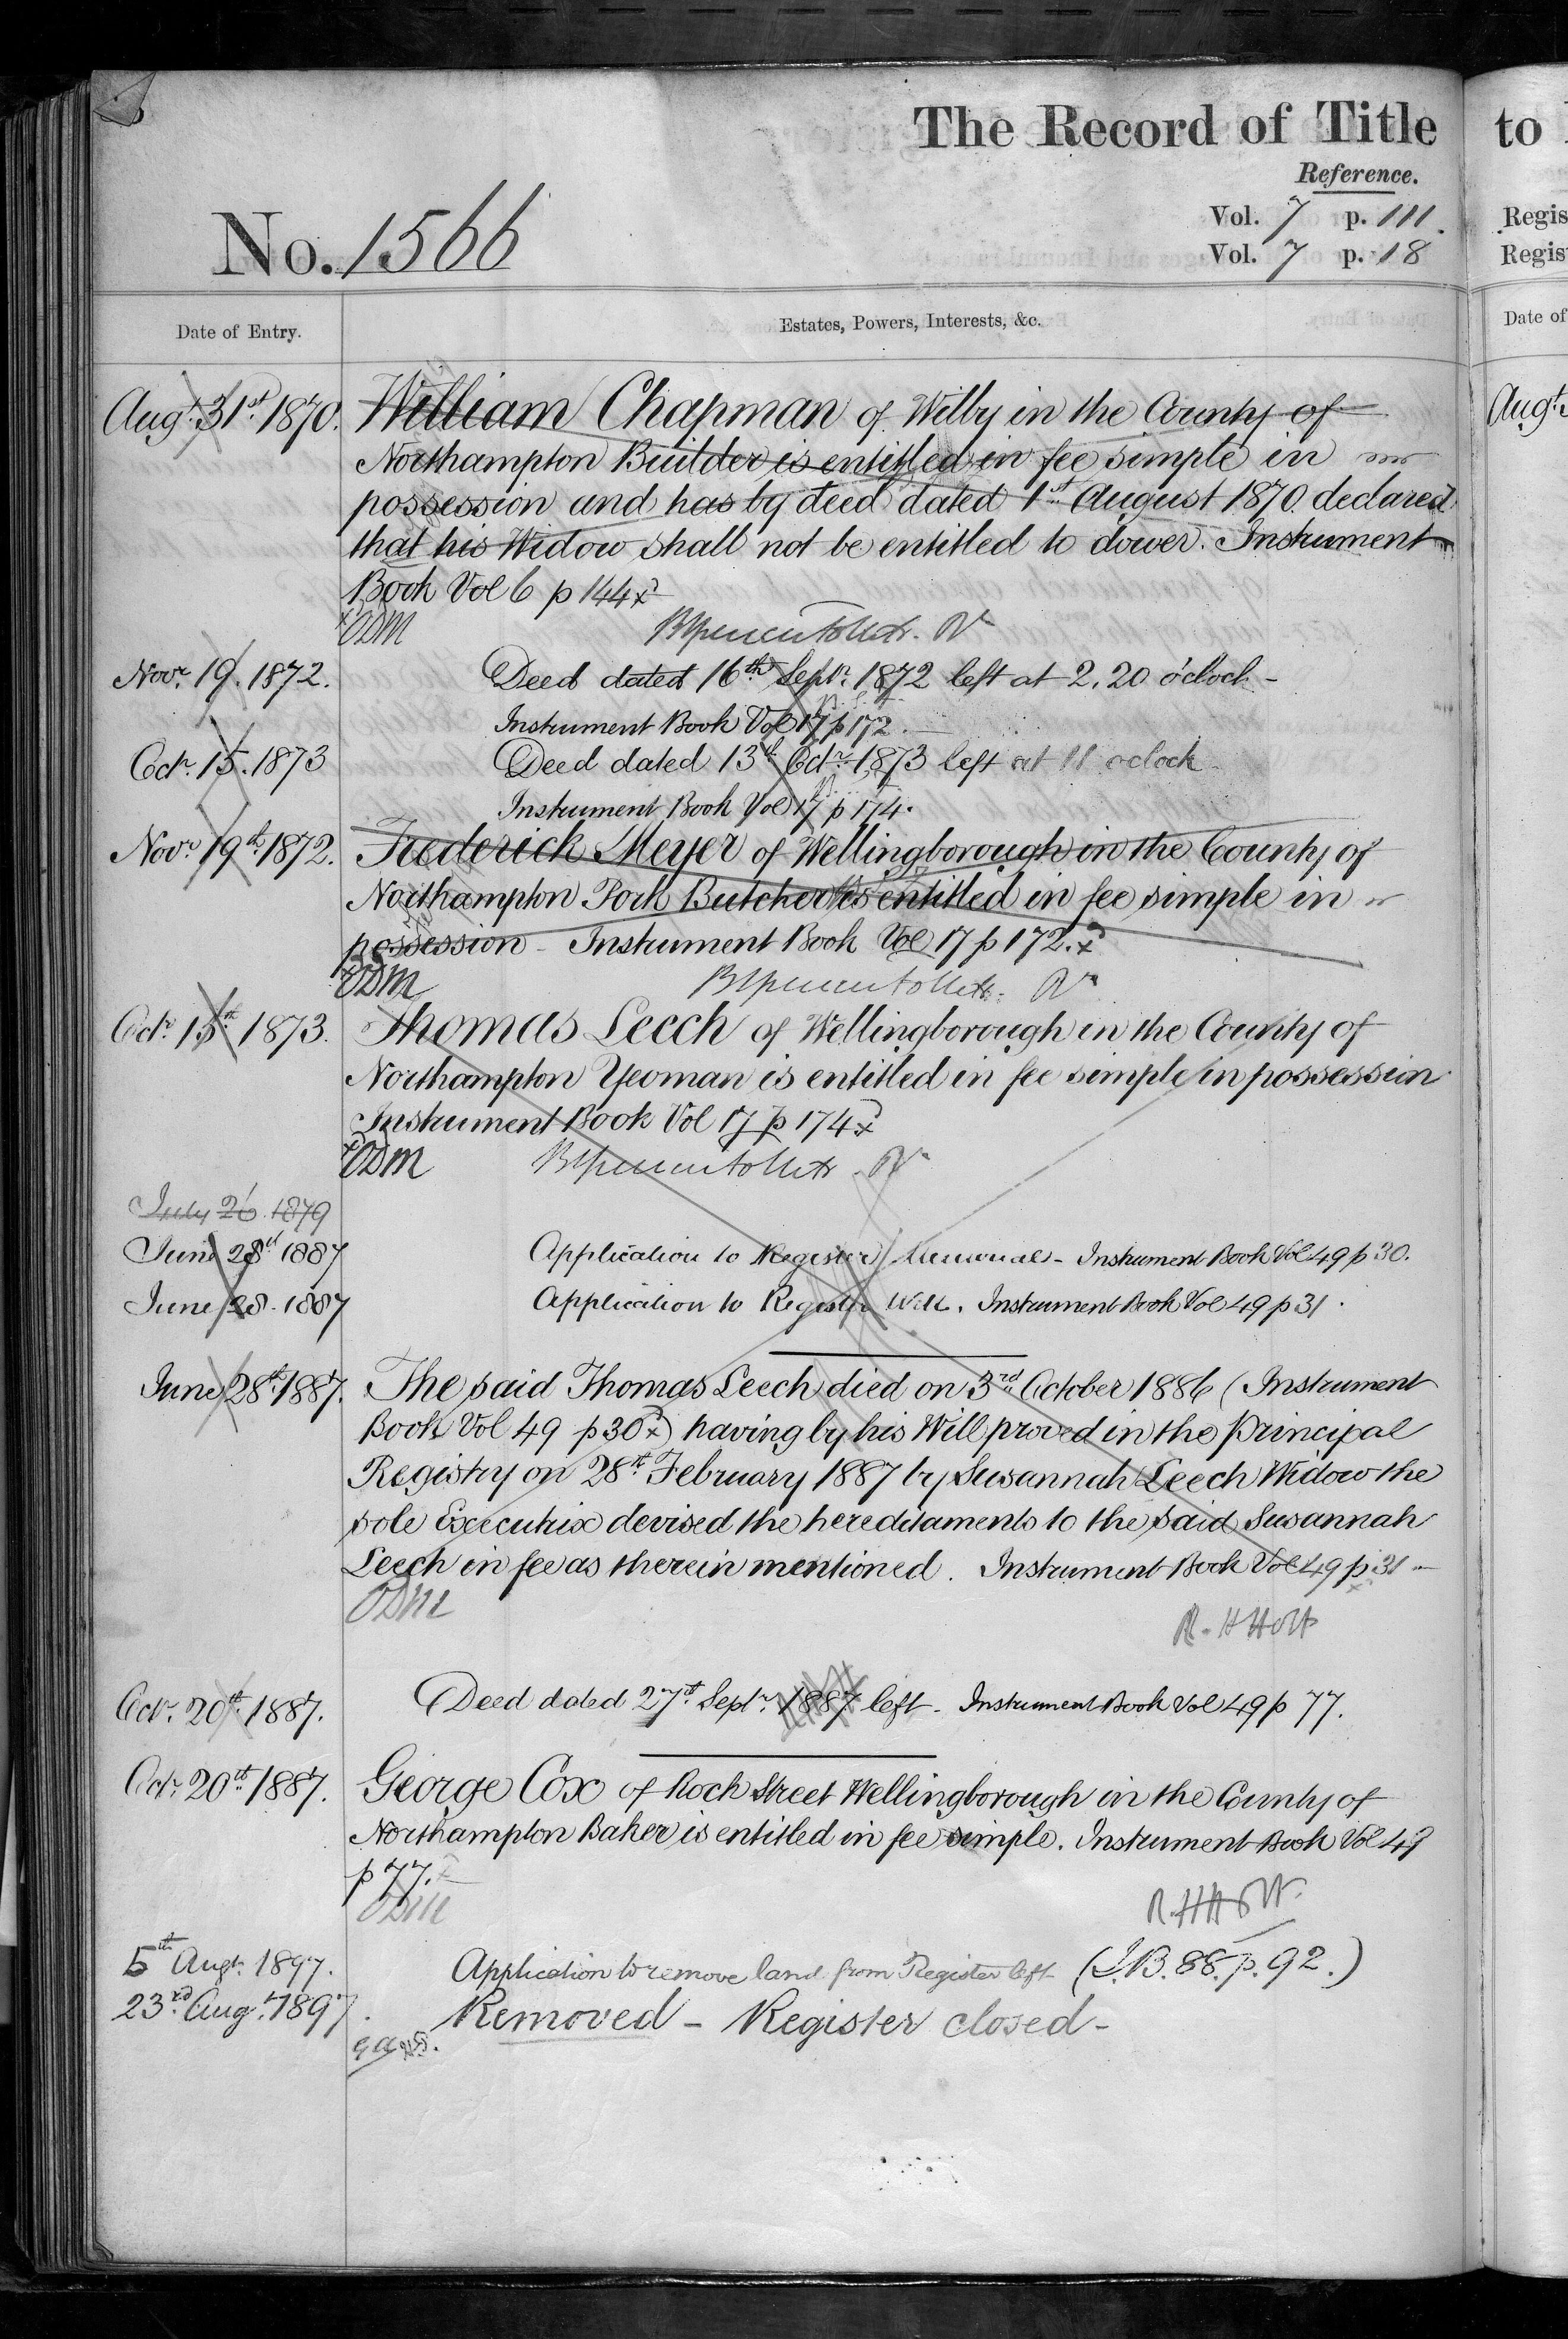 The Record of Title
to
Reference.
No. 1566
Vol. 7 p. 111.
Vol. 7 p. 18
Regis
Regis
Date of Entry.
Estates, Powers, Interests, &c.
Date of
Augt. 31st. 1870. William Chapman of Wilby in the County of
Augt.
Northampton Builder is entitled in fee simple in
possession and has by deed dated 1st August 1870 declared
that his Widow shall not be entitled to dower. Instrument
Book Vol 6 p 144 x
x ODM
Novr. 19. 1872. Deed dated 16th Septr. 1872 left at 2.20 o'clock -
Instrument Book Vol 17 p 172.
Octr. 15. 1873 Deed dated 13th Octr. 1873 left at 11 oclock
Instrument Book Vol 17 p 174.
Novr. 19th. 1872. Frederick Meyer of Wellingborough in the County of
Northampton Pork Butcher is entitled in fee simple in
possession - Instrument Book Vol 17 p 172. x
x ODM
Octr. 15th 1873. Thomas Leech of Wellingborough in the County of
Northampton Yeoman is entitled in fee simple in possession
Instrument Book Vol 17 p 174 x
x ODM
July 26. 1879
June 28th 1887 Application to Register Memorial - Instrument Book Vol 49 p 30.
June 28. 1887 Application to Register Will. Instrument Book Vol 49 p 31.
June 28th. 1887. The said Thomas Leech died on 3rd October 1886 (Instrument
Book Vol 49 p 30 x) having by his Will proved in the Principal
Registry on 28th. February 1887 by Susannah Leech Widow the
sole Executrix devised the hereditaments to the said Susannah
Leech in fee as therein mentioned. Instrument Book Vol 49 p 31 -
ODM
R. H Holt
Octr. 20th. 1887. Deed dated 27th. Septr. 1887 left - Instrument Book Vol 49 p 77.
Octr. 20th. 1887. George Cox of Rock Street Wellingborough in the County of
Northampton Baker is entitled in fee simple. Instrument Book Vol 49
p 77. x
ODM
R. H Holt.
5th Augt. 1897. Application to remove land from Register left (I.B. 88. p. 92.)
23rd. Augt. 1897. Removed - Register closed -